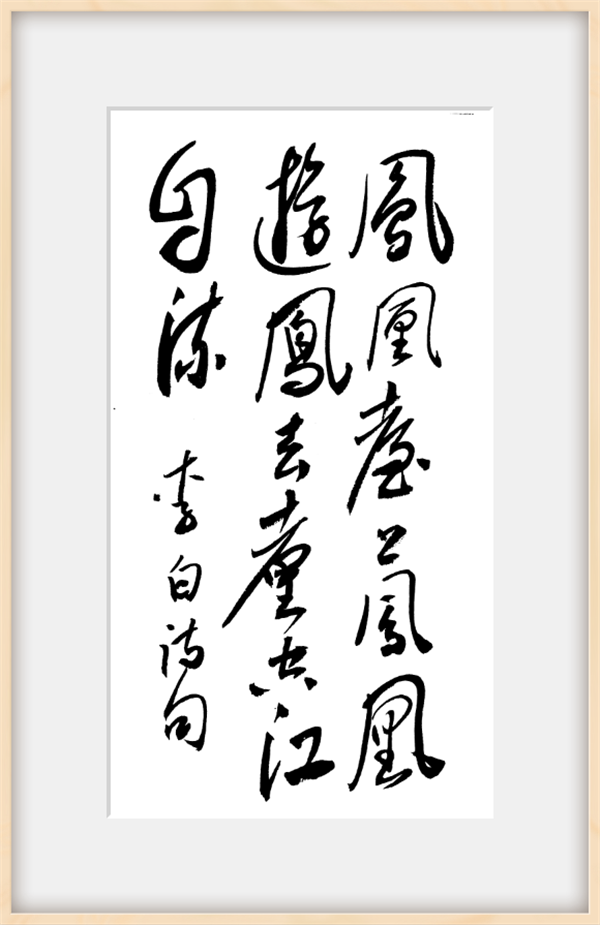 鳳凰臺上鳳凰
遊鳳去臺空江
自流
李白诗句